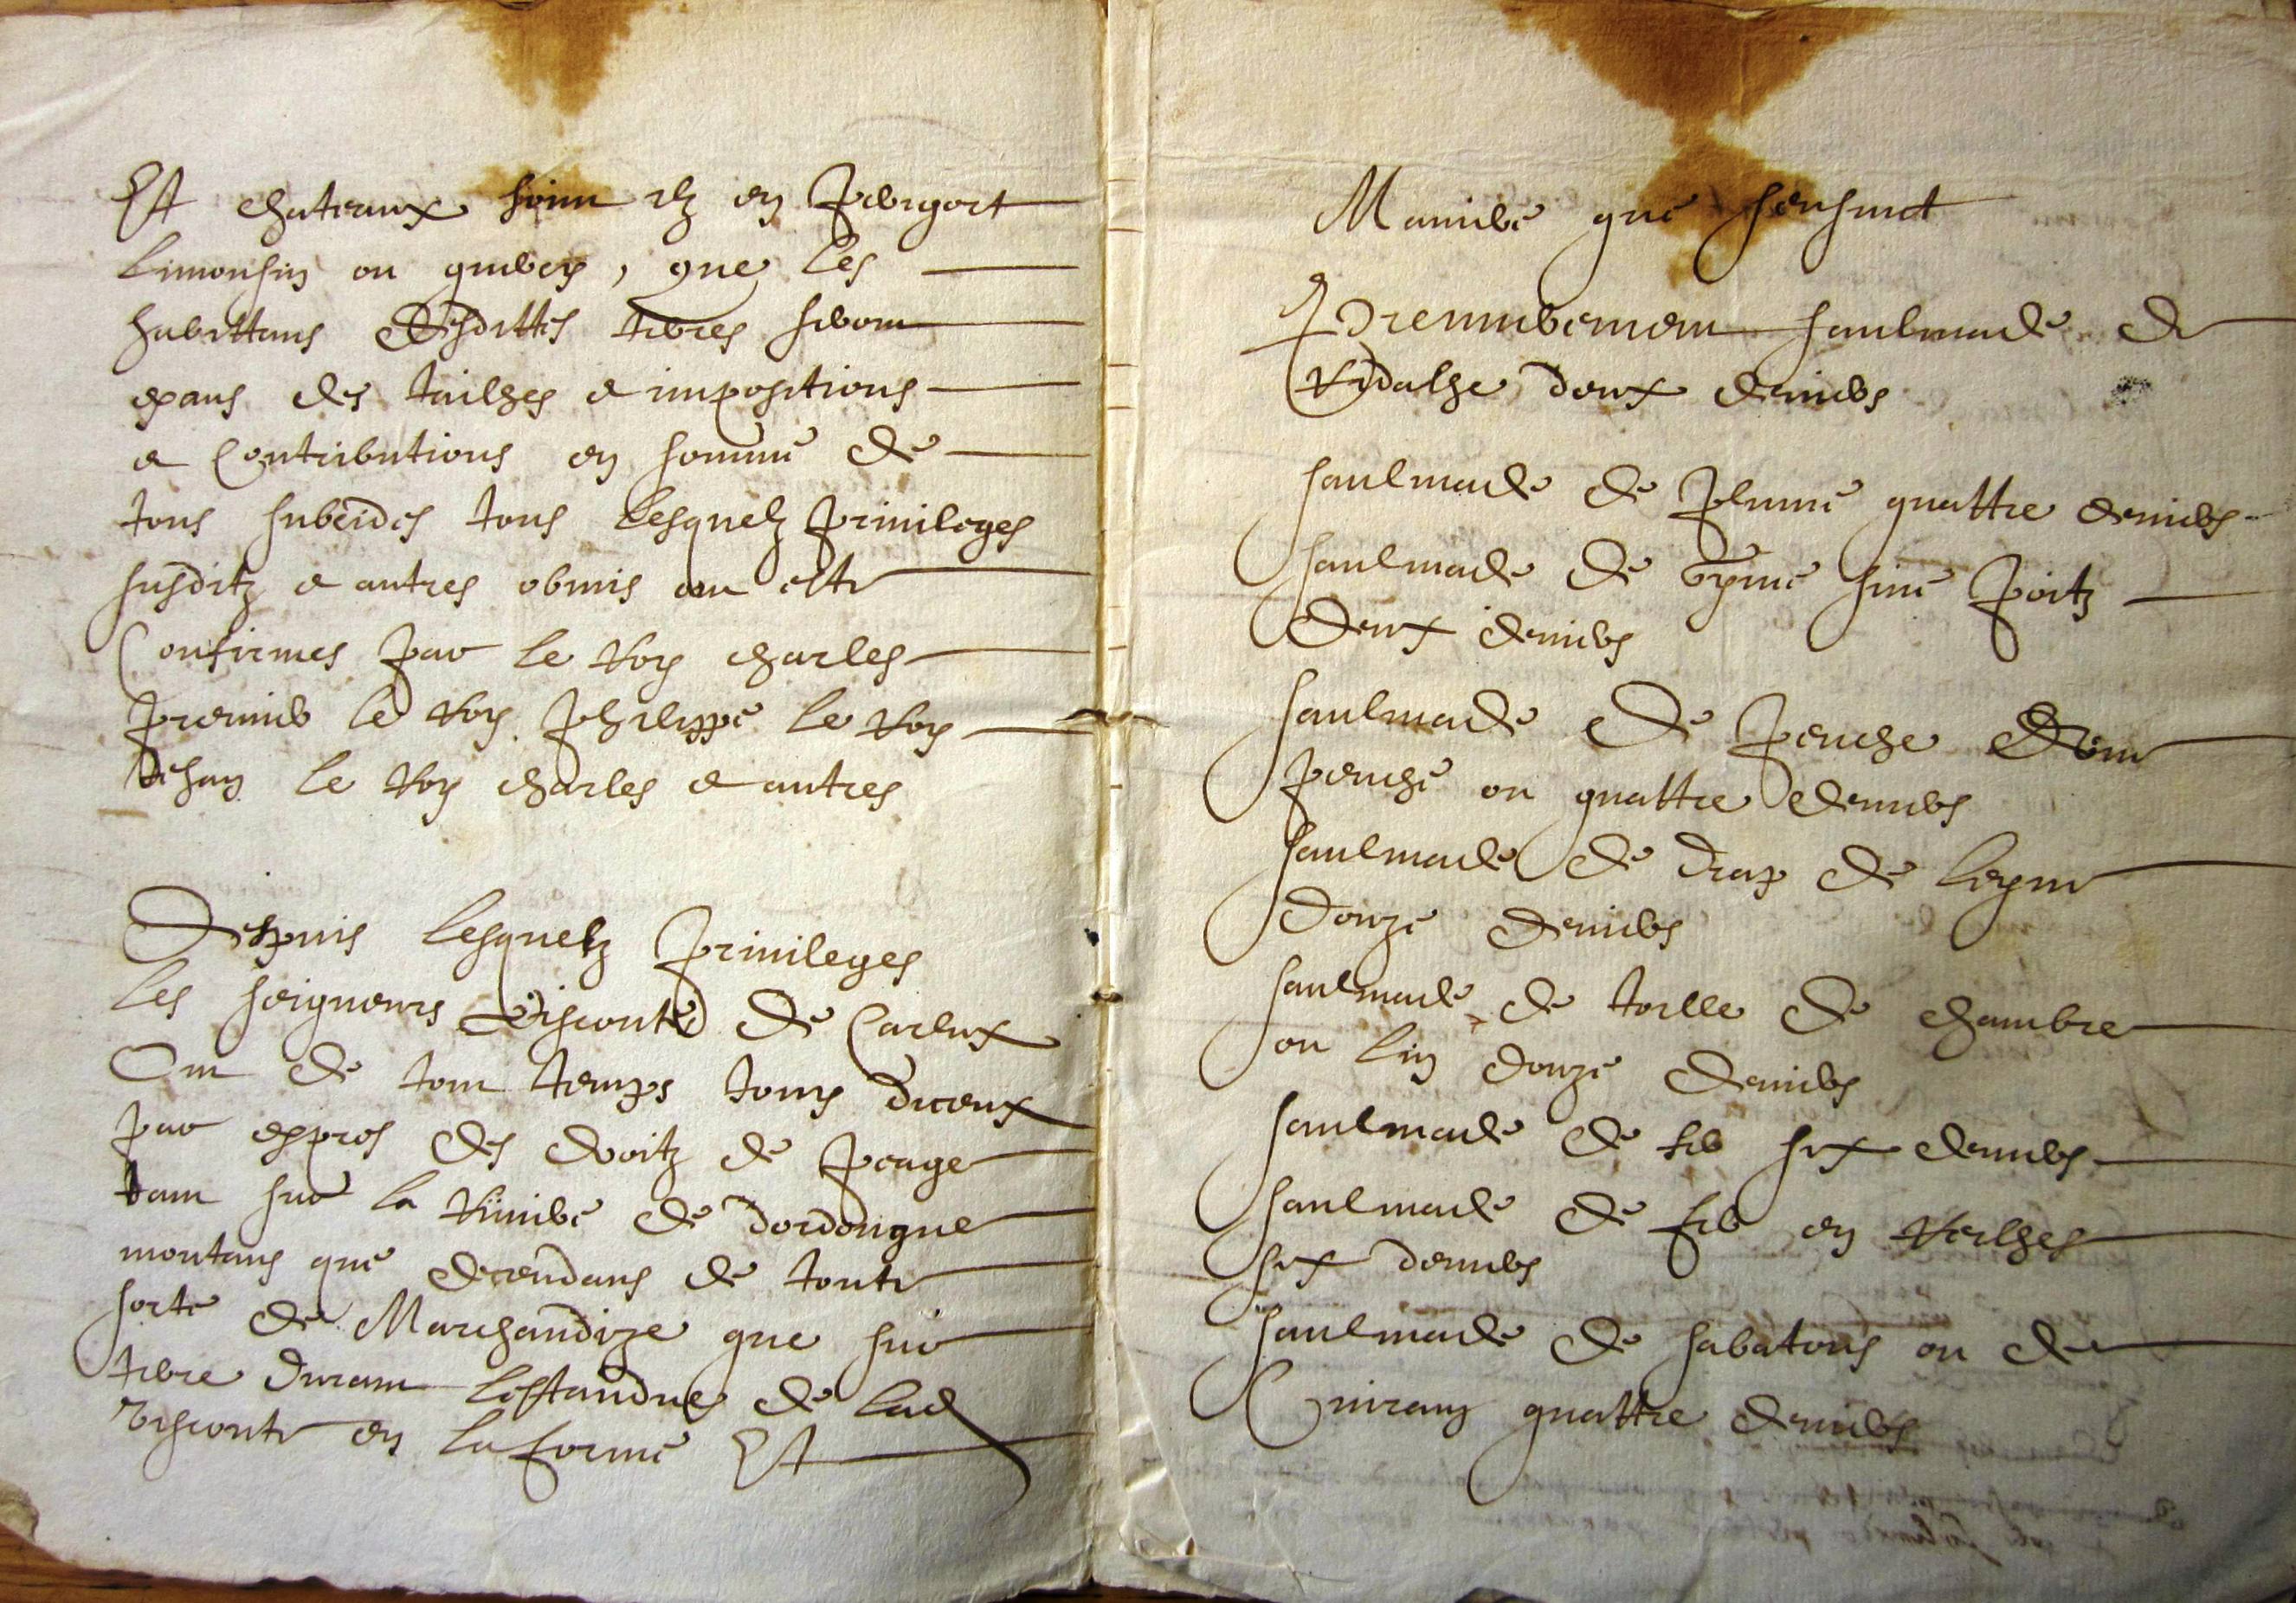 Et chateaux soint ilz en perigort
limousin ou quercy, que les
habittans desdittes terres seront
exans des tailhes et impositions
et contributions en somme de
tous subcides tous lesquelz privileges
susditz et autres obmis ont esté
confirmes par le Roy charles
premier le Roy philippe le Roy
Jehan le Roy charles et autres
Despuis lesquelz privileges
les seigneurs visconte de Carlux
Ont de tout temps jouy diceux
par expres des droitz de peage
tant sur la riviere de dordougne
montans que decendans de toute
sorte de Marchandize que sur
terre durant lestandue de lad
visconte en la forme Et
Maniere que sensuict
Premierement saulmade de
Vidalhe deux deniers
saulmade de plume quattre deniers
saulmade de syme poitz
deux deniers
saulmade de penche
penche ou quattre deniers
saulmade de drap de leyne
douze deniers
saulmade de toille de chambre
ou lin douze deniers
saulmade de fer six deniers
saulmade de fer en Reilhes
six deniers
saulmade de sabatous ou de
Cuiran quattre deniers